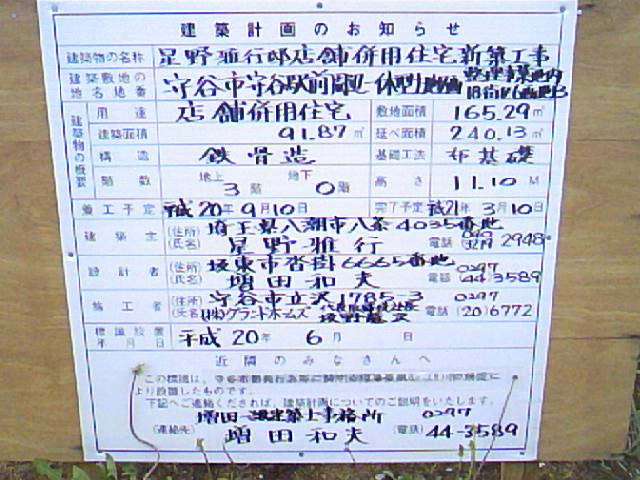 建築計画のお知らせ
建築物の名称 星野雅行邸店舗併用住宅新築工事
建築敷地の地名地番 守谷市守谷駅前周辺一体型
用途 店舗併用住宅 敷地面積 165.29㎡
建築物の概要 建築面積 91.87㎡ 延べ面積 240.13㎡
構造 鉄骨造 基礎工法 布基礎
階数 地上 3階 地下 0階 高さ 11.10 M
着工予定 平成20年9月10日 完了予定 平成21年3月10日
建築主 (住所) 埼玉県八潮市八条4035番地
(氏名) 星野雅行 電話 2948
設計者 (住所) 坂東市沓掛6665番地 0297
(氏名) 増田和夫 電話 (44)3589
施工者 (住所) 守谷市立沢1785-3 0297
(氏名) (株)グランドホームズ 電話 (20)6772
標識設置年月日 平成20年6月 日
近隣のみなさんへ
この標識は、
より設置したものです。
下記へご連絡くだされば、建築計画についてのご説明をいたします。
増田一級建築士事務所 0297
(連絡先) 増田和夫 (電話) 44-3589